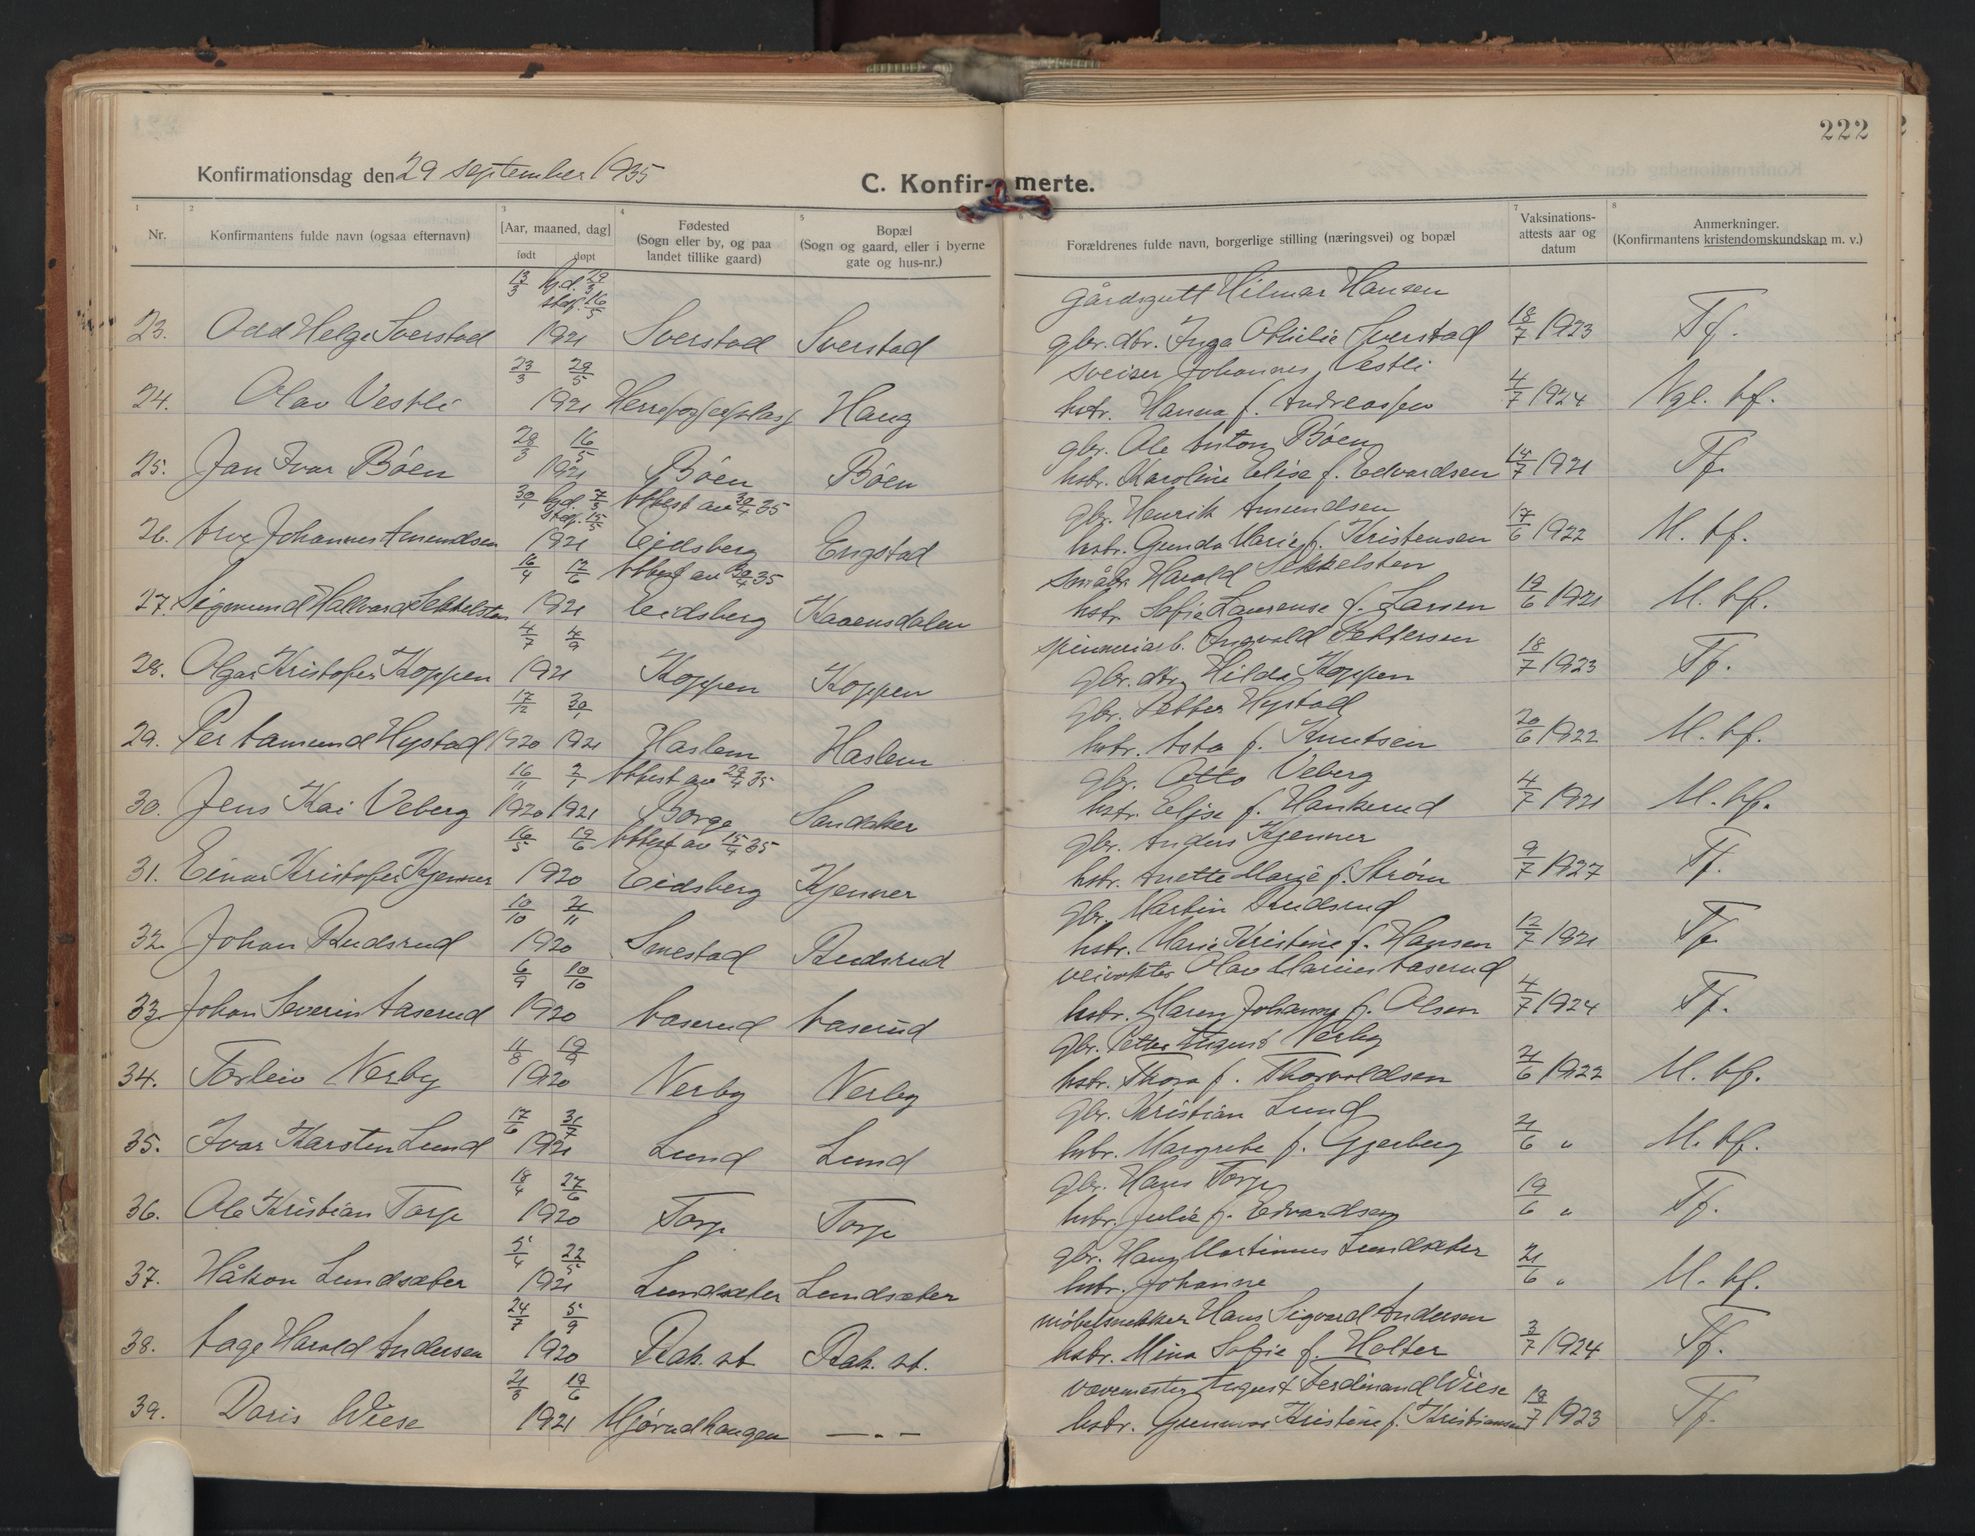 222
Konfirmationsdag den 29 september 1935
C. Konfirmerte.
1 2 3 4 5 6 7 8
Nr.
Konfirmantens fulde navn (ogsaa efternavn)
[Aar, maaned, dag]
født døpt
Fødested
(Sogn eller by, og paa
landet tillike gaard)
Bopæl
(Sogn og gaard, eller i byerne
gate og hus-nr.)
Forældrenes fulde navn, borgerlige stilling (næringsvei) og bopæl
Vaksinations-
attests aar og
datum
Anmerkninger.
(Konfirmantens kristendomskundskap m. v.)
13/3 hjd. 29/3 gårdsgutt Hilmar Hansen
stadf. 16/5
23. Odd Helge Sverstad 1921 Sverstad Sverstad gbr. dtr. Inga Othilie Sverstad 18/7 1923 Tf.
23/3 29/5 sveiser Johannes Vestli
24. Olav Vestli 1921 Haug hstr. Hanna f. Andreassen 4/7 1924 Ngl. tf.
28/3 16/5 gbr. Ole Anton Bøen
25. Jan Ivar Bøen 1921 Bøen Bøen hstr. Karoline Elise f. Edvardsen 14/7 1921 Tf.
hjd. 7/3 Attest av 30/4 35 gbr. Henrik Amundsen
stadf. 15/5
26. Arve Johannes Amundsen 1921 Eidsberg Engstad hstr. Gunda Marie f. Kristensen 17/6 1922 M. tf.
16/4 12/6 Attest av 30/4 35 småbr. Harald Sekkelsten
27. Sigmund Hallvard Sekkelsten 1921 Eidsberg Kaaensdalen hstr. Sofie Laurense f. Larsen 19/6 1921 M. tf.
4/7 4/9 spinneriarb. Ingvald Pettersen
28. Olgar Kristofer Koppen 1921 Koppen Koppen gbr. dtr. Hilda Koppen 18/7 1923 Tf.
17/12 30/1 gbr. Petter Hystad
29. Per Aamund Hystad 1920 1921 Haslem Haslem hstr. Asta f. Knutsen 20/6 1922 M. tf.
16/11 2/1 Attest av 29/4 35 gbr. Otto Veberg
30. Jens Kai Veberg 1920 1921 Borge Sandaker hstr. Elise f. Hankerud 4/7 1921 M. tf.
16/5 19/6 Attest av 15/4 35 gbr. Anders Kjenner
31. Einar Kristofer Kjenner 1920 Eidsberg Kjenner hstr. Anette Marie f. Strøm 9/7 1927 Tf.
10/10 21/11 gbr. Martin Rudsrud
32. Johan Rudsrud 1920 Smestad Rudsrud hstr. Marie Kristine f. Hansen 12/7 1921 Tf.
6/9 10/10 veivokter Olav Marius Aaserud
33. Johan Severin Aaserud 1920 Aaserud Aaserud hstr. Maren Johanne f. Olsen 4/7 1924 Tf.
11/8 19/9 gbr. Petter August Nerby
34. Torleiv Nerby 1920 Nerby Nerby hstr. Thora f. Thorvaldsen 21/6 1922 M. tf.
17/6 31/7 gbr. Kristian Lund
35. Ivar Karsten Lund 1921 Lund Lund hstr. Margrete f. Gjerberg 21/6 " M. tf.
18/4 27/6 gbr. Hans Torp
36. Ole Kristian Torp 1920 Torp Torp hstr. Julie f. Edvardsen 19/6 " Tf.
5/4 22/5 gbr. Hans Martinius Lundsæter
37. Håkon Lundsæter 1921 Lundsæter Lundsæter hstr. Johanne 21/6 " M. tf.
24/7 5/9 møbelsnekker Hans Sigvard Andersen
38. Aage Harald Andersen 1920 Rak. st. Rak. st. hstr. Mina Sofie f. Holter 3/7 1924 Tf.
21/3 19/6 vævemester August Ferdinand Wiese
39. Doris Wiese 1921 Mjørudhaugen —.— hstr. Gunnvor Kristine f. Kristiansen 18/7 1923 Tf.